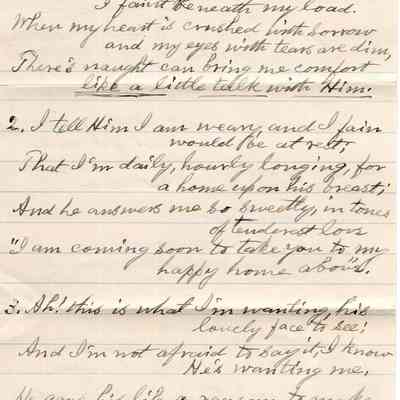 I faint beneath my load.
When my heart is crushed with sorrow
and my eyes with tears are dim,
There's naught can bring me comfort
like a little talk with Him.
2. I tell Him I am weary, and I fain
would be at rest;
That I'm daily, hourly longing, for
a home upon his breast;
And he answers me so sweetly, in tones
of tenderest love
"I am coming soon to take you to my
happy home above".
3. Ah! this is what I'm wanting, his
lovely face to see;
And I'm not afraid to say it, I know
He's wanting me.
He gave his life a ransom to make